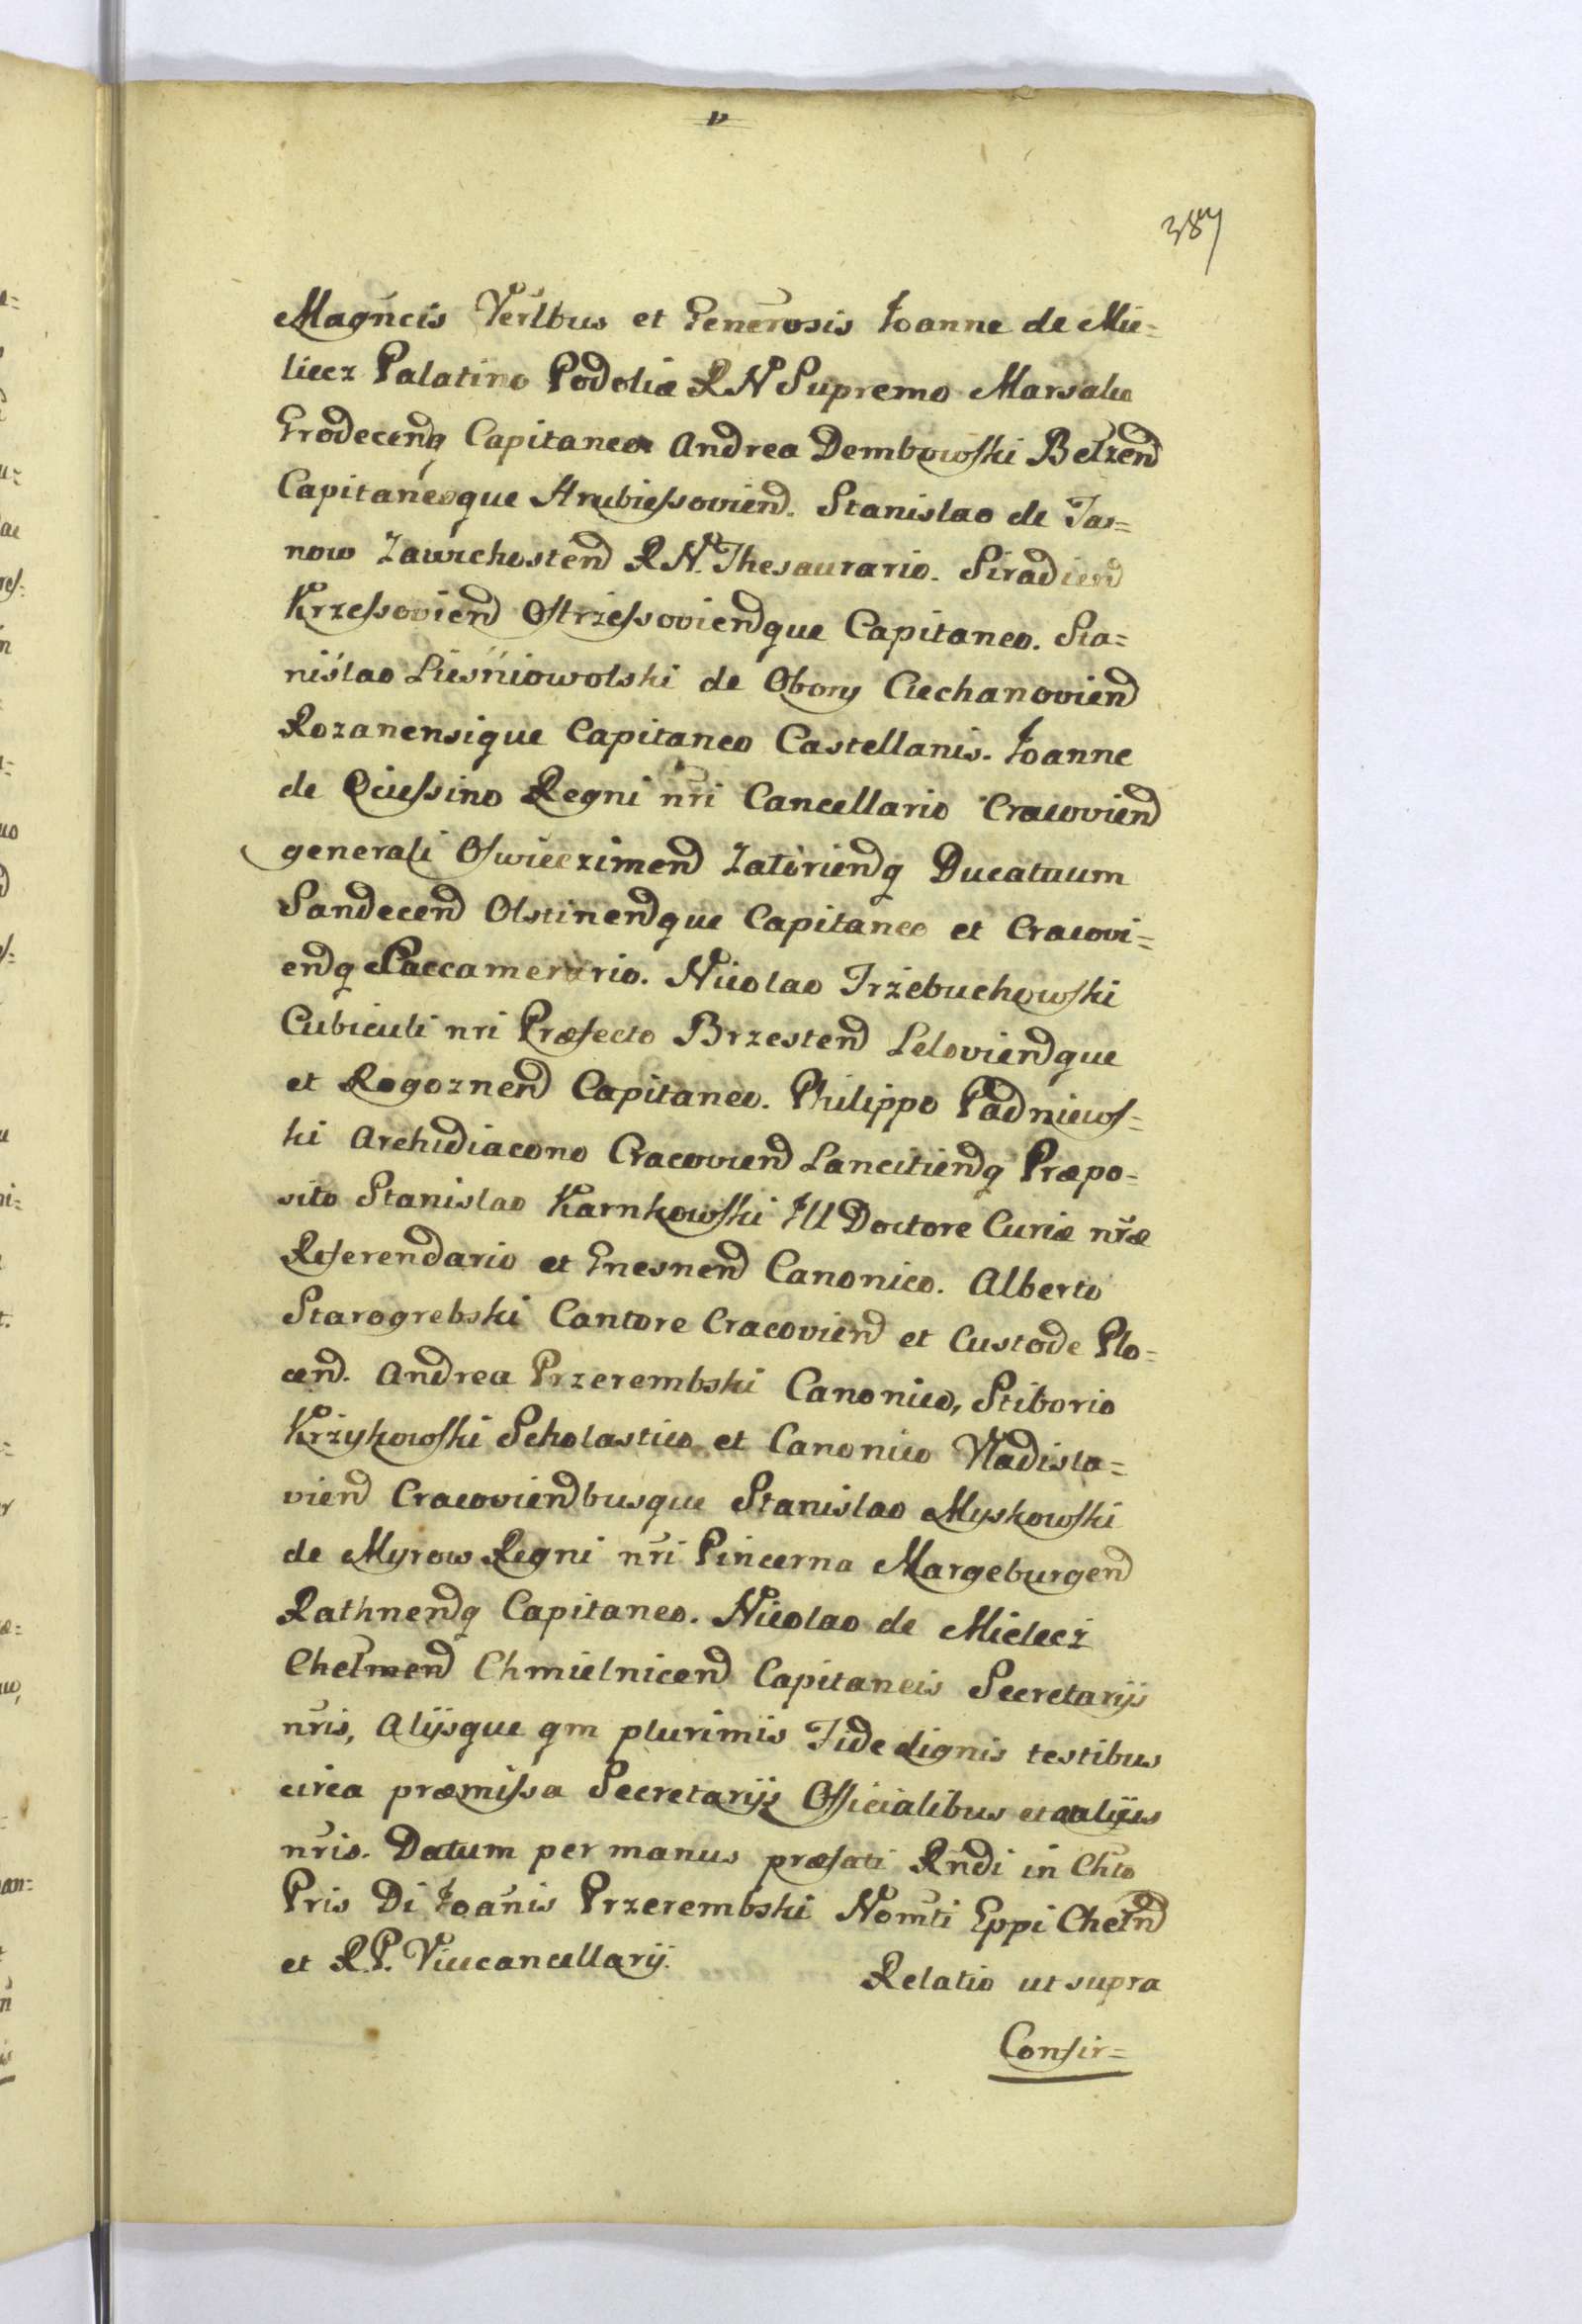 387
Magñcis Verlbus et Generosis Joanne de Mie=
liecz Palatino Podoliæ R N Supremo Marsalco
Grodecenq Capitaneo Andrea Dembowski Belzen
Capitaneoque Hrubiessovien. Stanislao de Tar=
now Zawichosten R N. Thesaurario. Siradien
Krzessovien Ostrzessovienque Capitaneo. Sta=
nislao Liesniowolski de Obory Ciechanovien
Rozanensique Capitaneo Castellanis. Joanne
de Ociessino Regni nri Cancellario Cracovien
generali Oswieczimen Zatorienq Ducatuum
Sandecen Olstinenque Capitaneo et Cracovi=
enq Succamerario. Nicolao Trzebuchowski
Cubiculi nri Præfecto Brzesten Lelovienque
et Rogoznen Capitaneo. Philippo Padniews=
ki Archidiacono Cracovien Lancitienq Præpo=
sito Stanislao Karnkowski JU Doctore Curiæ nræ
Referendario et Gnesnen Canonico. Alberto
Starogrebski Cantore Cracovien et Custode Plo=
cen. Andrea Przerembski Canonico, Stiborio
Krzykowski Scholastico et Canonico Vladisla=
vien Cracovienbusque Stanislao Myskowski
de Myrow Regni nri Pincerna Margeburgen
Rathnenq Capitaneo. Nicolao de Mielecz
Chelmen Chmielnicen Capitaneis Secretarijs
nris, Alijsque qm plurimis Fide dignis testibus
circa præmissa Secretarijs Officialibus et aulijis
nris. Datum per manus præfati Rndi in Chto
Pris Di Joanis Przerembski Nomti Eppi Cheln
et R. P. Vicecancellarij.
Relatio ut supra
Confir=